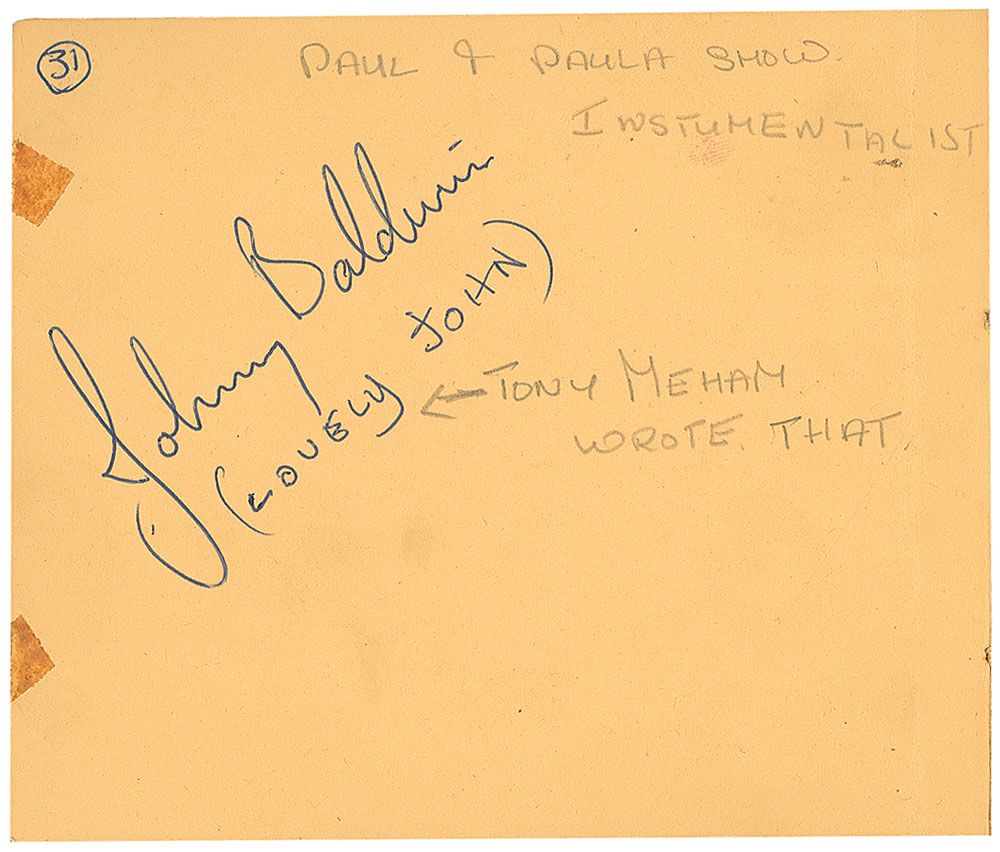 31
PAUL & PAULA SHOW.
INSTUMENTALIST
Johnny Baldwin
(LOVELY JOHN)
← TONY MEHAM
WROTE THAT.